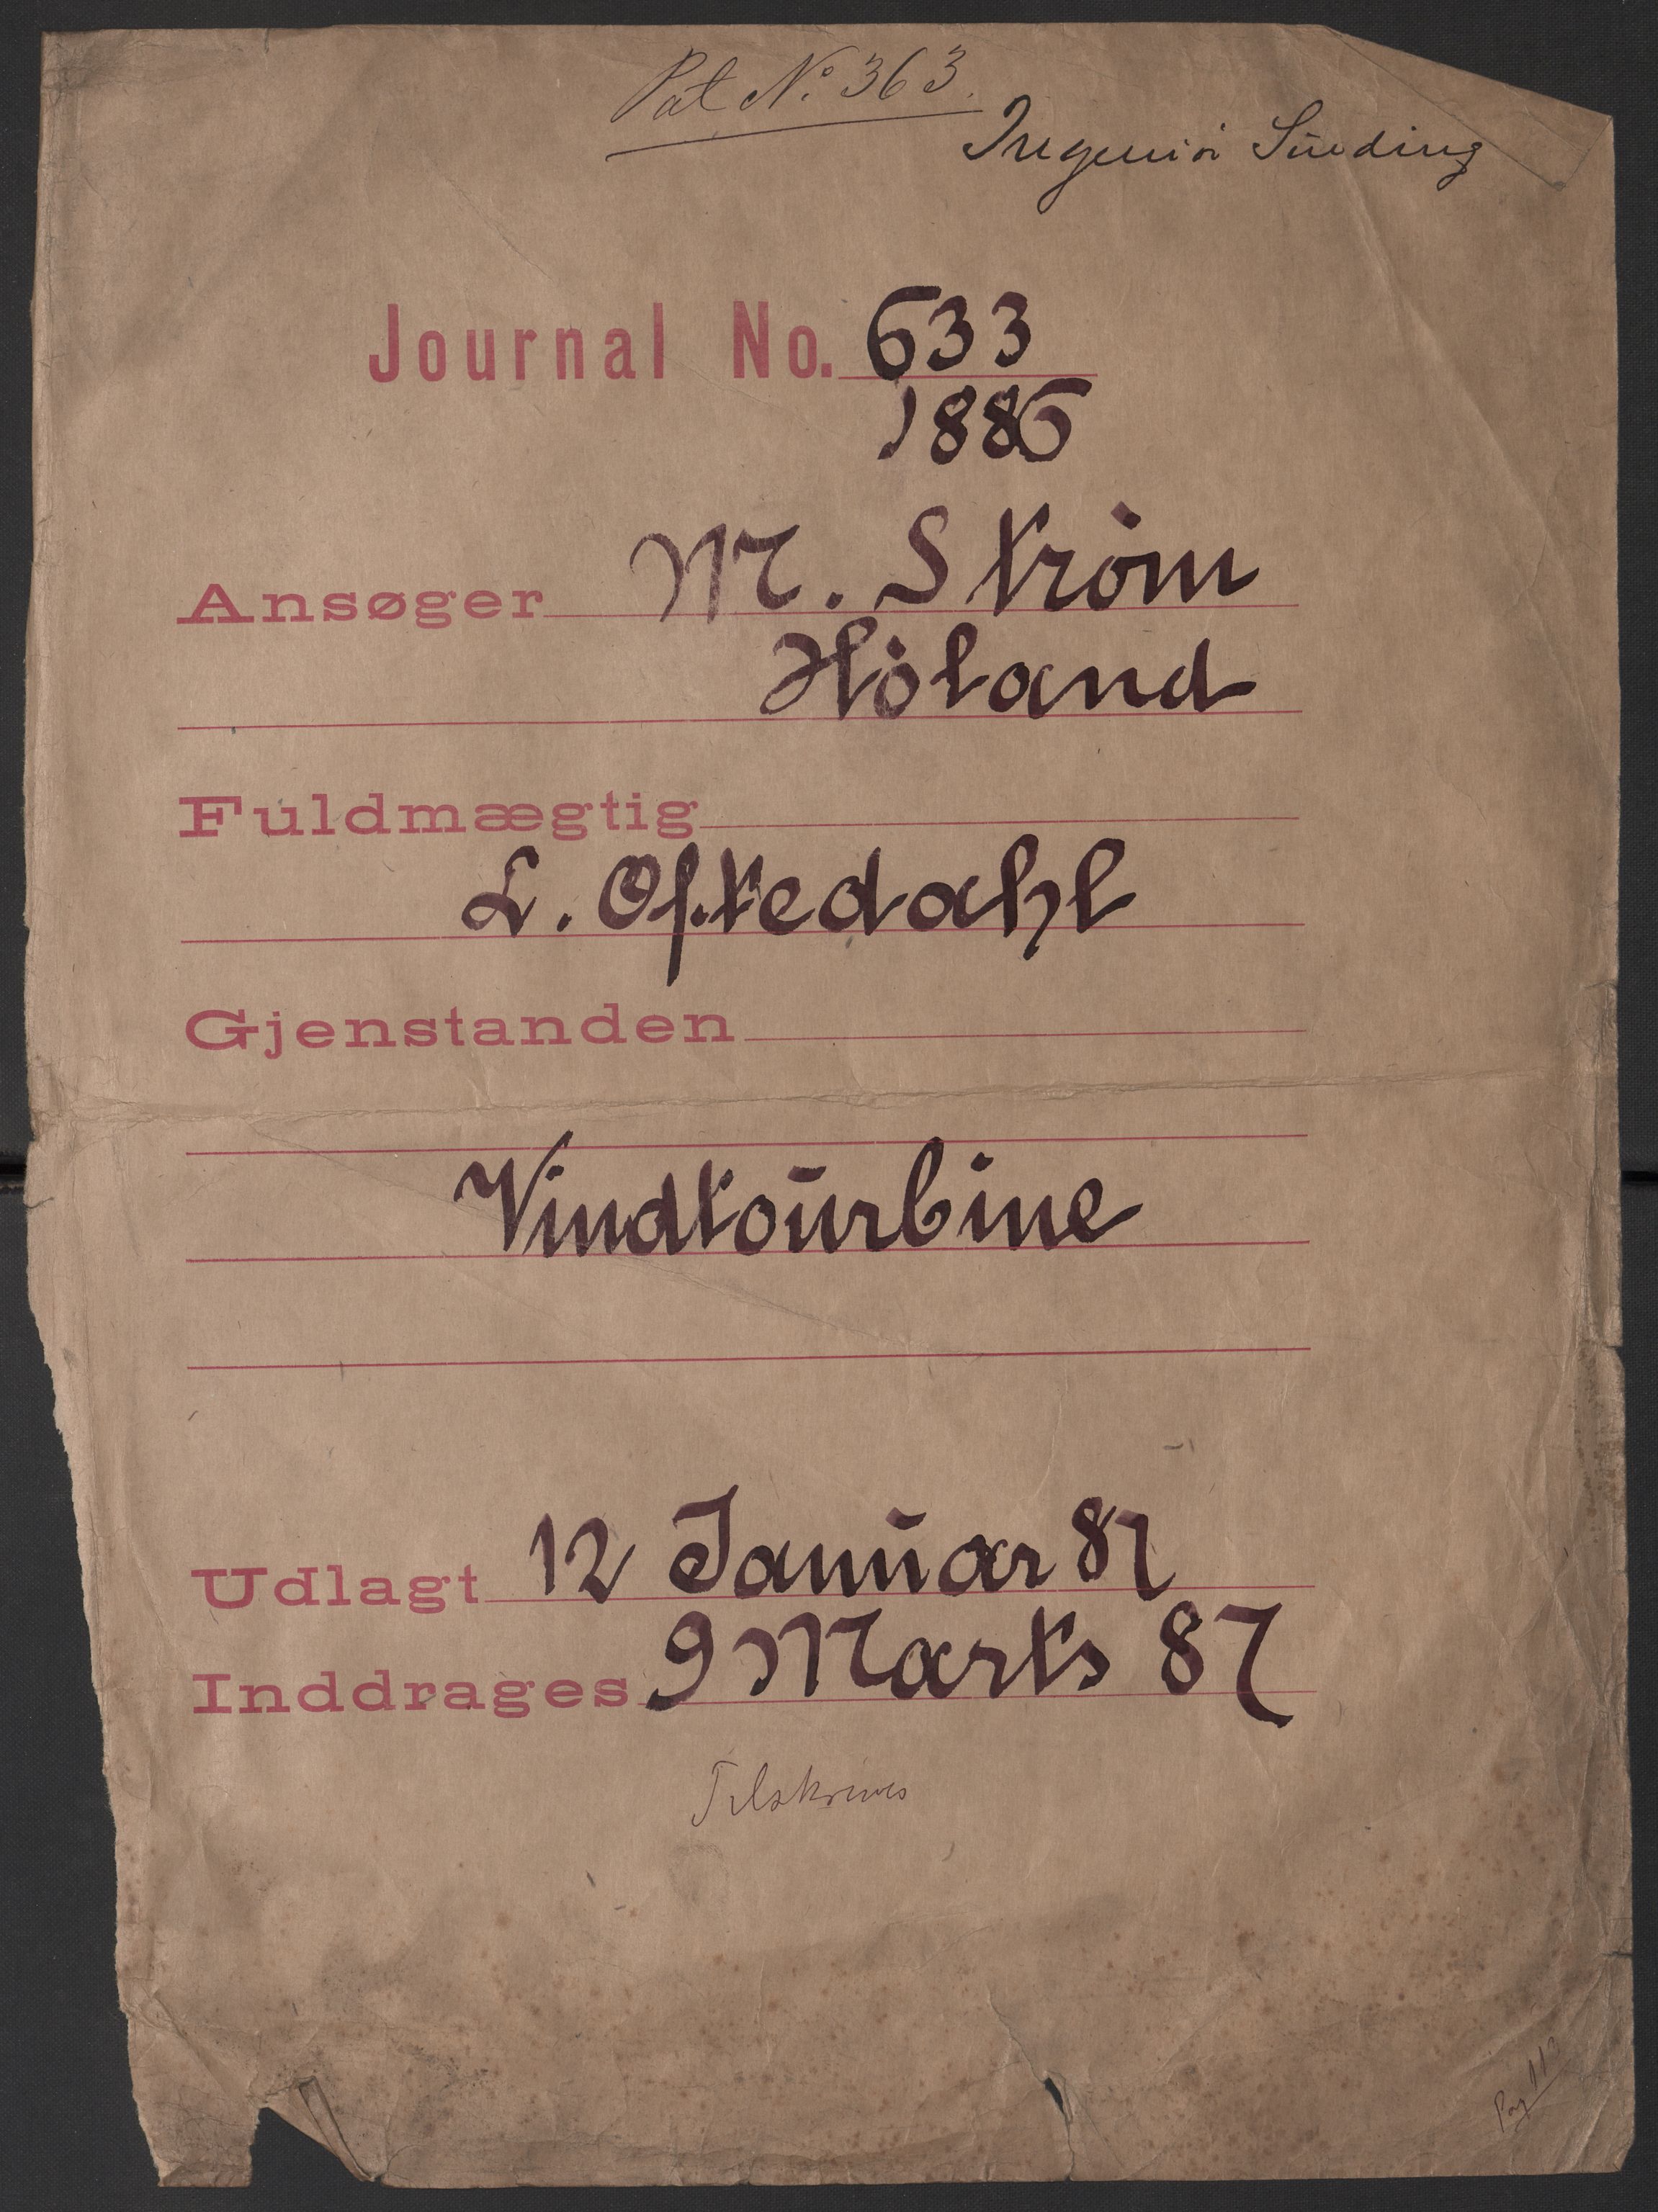 Pat No. 363.
Ingeniör Sinding
Journal No. 633
1886
Ansøger M. Ström
Höland
Fuldmægtig
L. Oftedahl
Gjenstanden
Vindtoŭrbine
Udlagt 12 Janŭar 87
Inddrages 9 Marts 87
Tilskrives
Pag 113